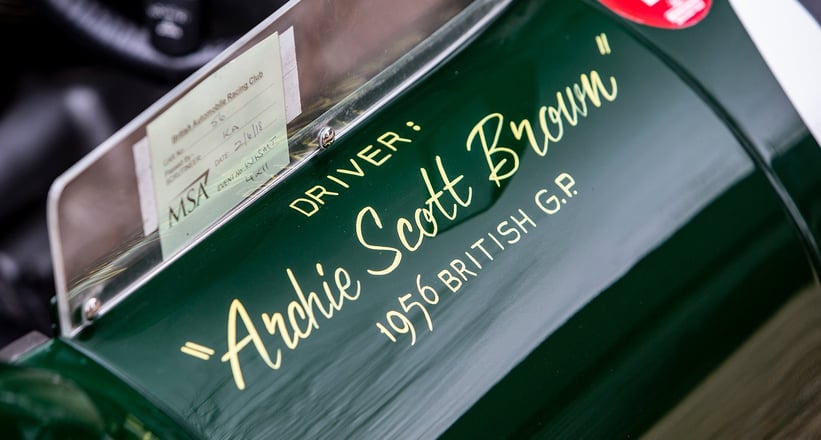 British Automobile Racing Club
CAR No. 56
Passed by KA
SCRUTINEER DATE 2/6/18
MSA
DRIVER:
"Archie Scott Brown"
1956 BRITISH G.P.